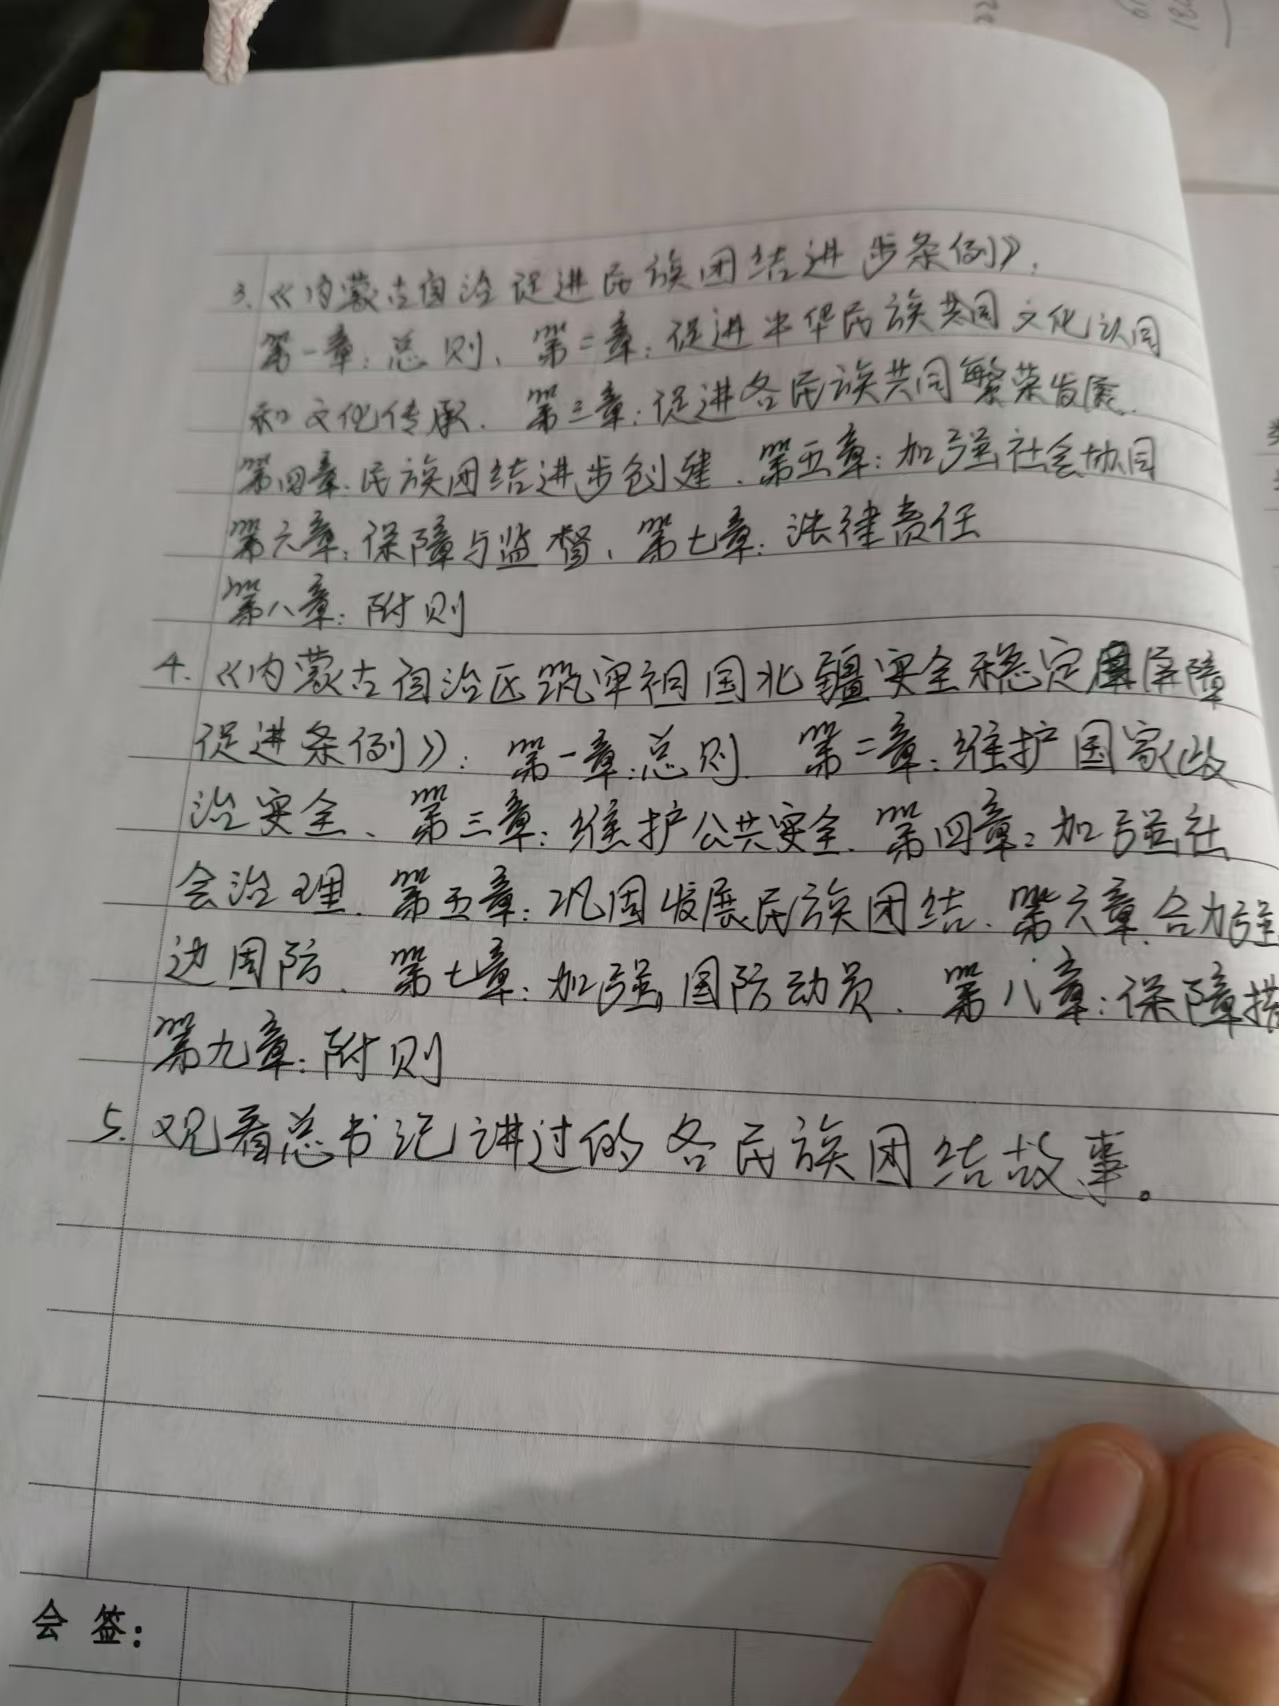 3.《内蒙古自治促进民族团结进步条例》.
第一章:总则、第二章:促进中华民族共同文化认同
和文化传承.第三章:促进各民族共同繁荣发展.
第四章:民族团结进步创建.第五章:加强社会协同
第六章:保障与监督、第七章:法律责任
第八章:附则
4.《内蒙古自治区筑牢祖国北疆安全稳定屏障
促进条例》:第一章:总则.第二章:维护国家政
治安全、第三章:维护公共安全.第四章:加强社
会治理.第五章:巩固发展民族团结.第六章.合力强
边固防.第七章:加强国防动员.第八章:保障措
第九章:附则
5.观看总书记讲过的各民族团结故事。
会签: